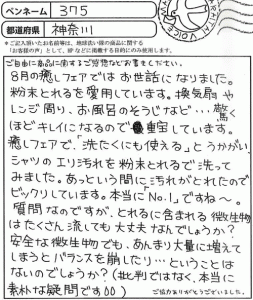 ペンネーム 375
都道府県 神奈川
＊ご記入頂いたお名前等は、地球洗い隊の商品に関する
「お客様の声」として、HP などに掲載する目的にのみ使用します。
ご自由に商品に関するご感想などお書きください。
8月の癒しフェアではお世話になりました。
粉末とれるを愛用しています。換気扇や
レンジ周り、お風呂のそうじなど…驚く
ほどキレイになるので重宝しています。
癒しフェアで、「洗たくにも使える」とうかがい、
シャツのエリ汚れを粉末とれるで洗って
みました。あっという間に汚れがとれたので
ビックリしています。本当に「No.1」ですね〜。
質問なのですが、とれるに含まれる微生物
はたくさん流しても大丈夫なんでしょうか？
安全な微生物でも、あんまり大量に増えて
しまうとバランスを崩したり…ということは
ないのでしょうか？(批判ではなく、本当に
素朴な疑問です)
ご協力ありがとうございました。